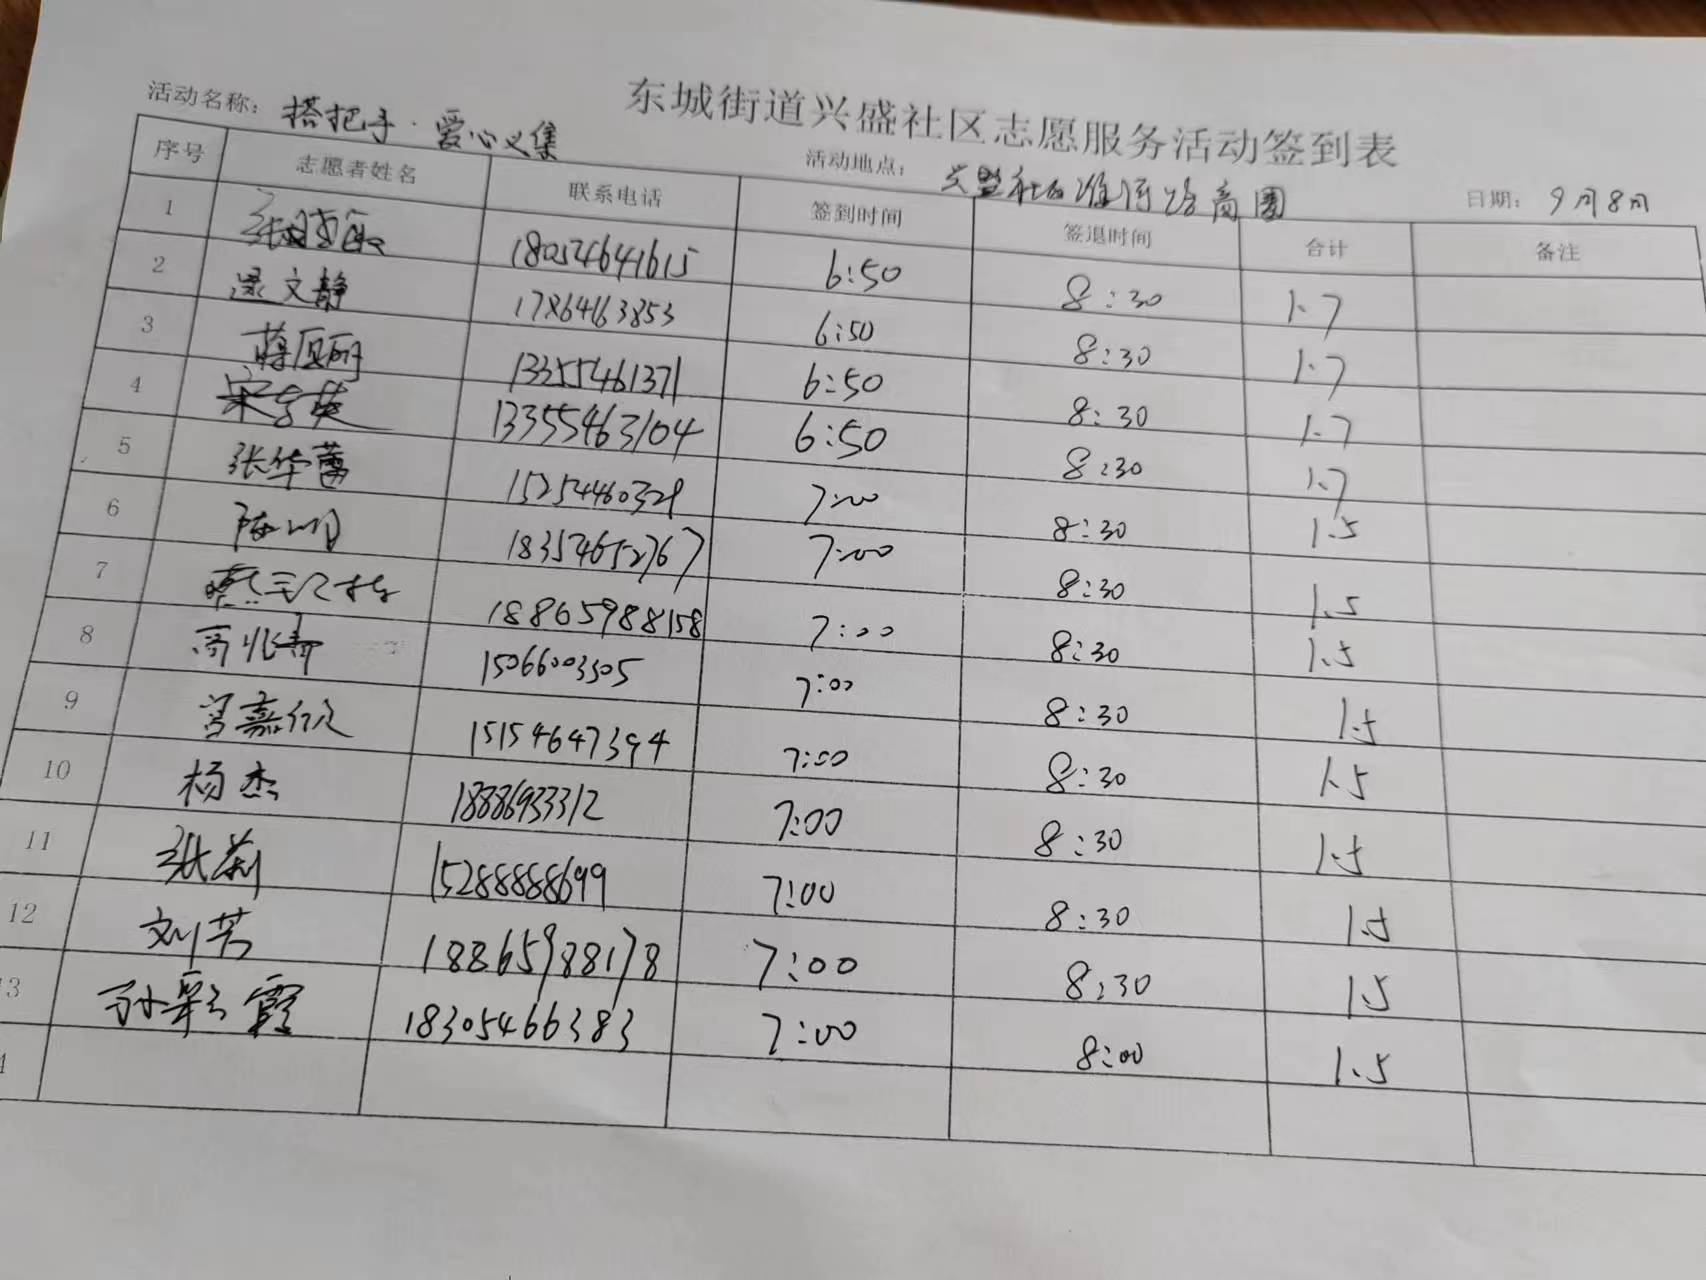 东城街道兴盛社区志愿服务活动签到表
活动名称: 搭把手·爱心义集 活动地点: 兴盛社区淮河路商圈 日期: 9月8日
序号 志愿者姓名 联系电话 签到时间 签退时间 合计 备注
1 18054641615 6:50 8:30 1.7
2 梁文静 17864163853 6:50 8:30 1.7
3 13355461371 6:50 8:30 1.7
4 13355463104 6:50 8:30 1.7
5 张华蕾 15254460329 7:00 8:30 1.5
6 陈明 18354652767 7:00 8:30 1.5
7 18865988158 7:00 8:30 1.5
8 15066003505 7:00 8:30 1.5
9 冯嘉欣 15154647394 7:00 8:30 1.5
10 杨杰 18886933312 7:00 8:30 1.5
11 张莉 15288888699 7:00 8:30 1.5
12 刘芳 18865988178 7:00 8:30 1.5
13 孙彩霞 18305466383 7:00 8:00 1.5